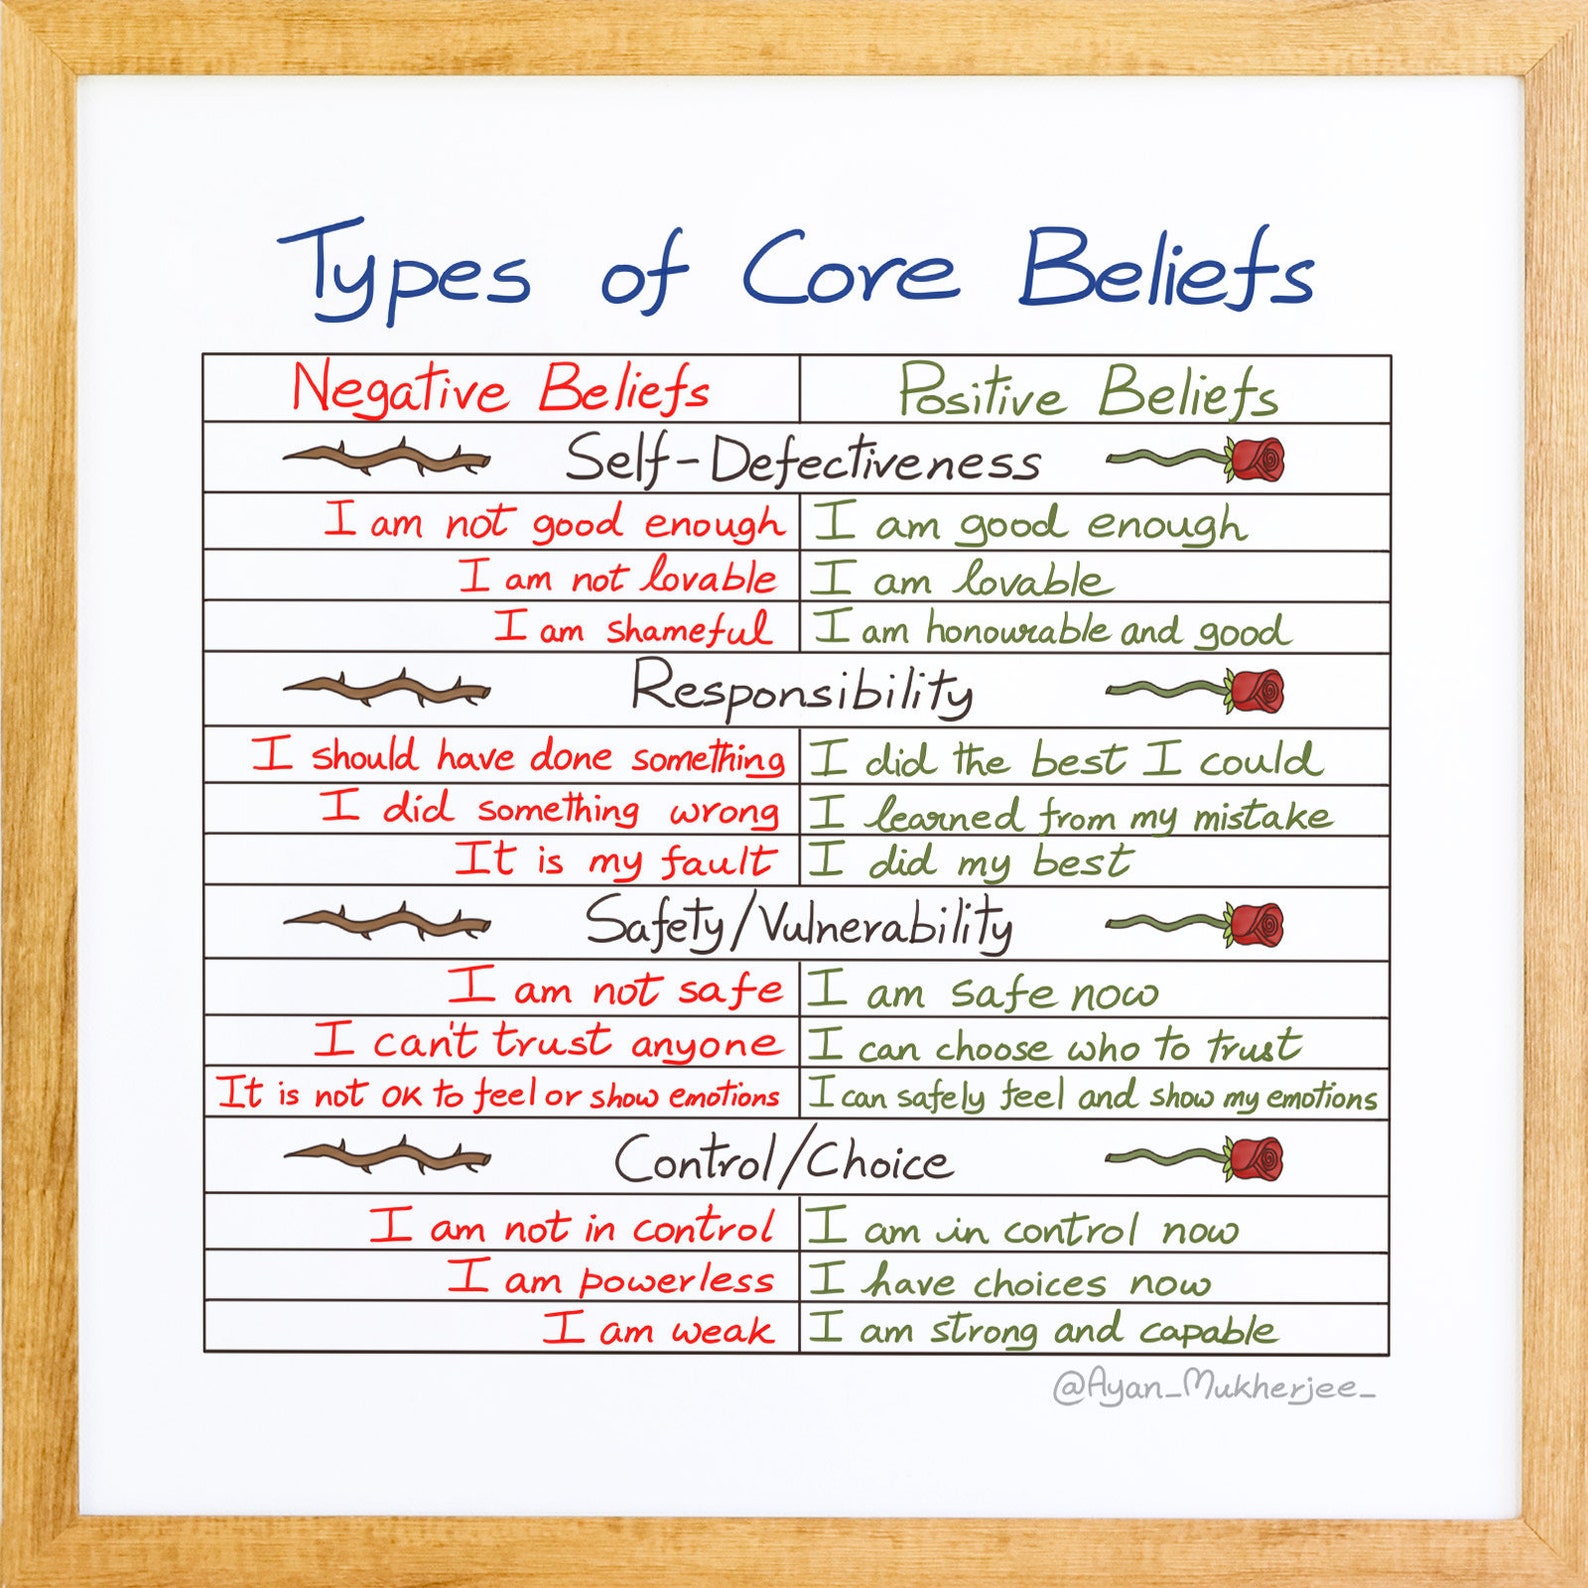 Types of Core Beliefs
Negative Beliefs Positive Beliefs
Self-Defectiveness
I am not good enough I am good enough
I am not lovable I am lovable
I am shameful I am honourable and good
Responsibility
I should have done something I did the best I could
I did something wrong I learned from my mistake
It is my fault I did my best
Safety/Vulnerability
I am not safe I am safe now
I can't trust anyone I can choose who to trust
It is not OK to feel or show emotions I can safely feel and show my emotions
Control/Choice
I am not in control I am in control now
I am powerless I have choices now
I am weak I am strong and capable
@Ayan_Mukherjee_